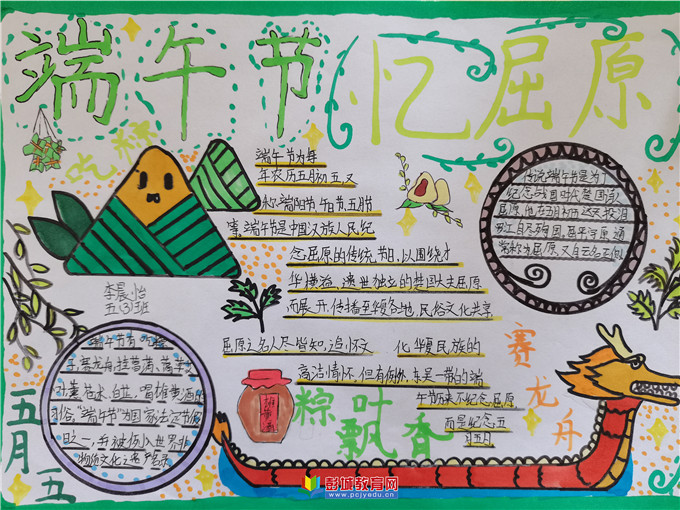 端午节 忆屈原
吃粽
端午节为每
年农历五月初五,又
称端阳节,午日节,五月节
等,端午节是中国汉族人民纪
念屈原的传统节日,以围绕才
华横溢、遗世独立的楚国大夫屈原
而展开,传播至华夏各地,民俗文化共享
屈原之名人尽皆知,追怀 华夏民族的
高洁情怀,但有例外,东吴一带的端
午节历来不纪念屈原
而是纪念五
月五日
传说端午节是为了
纪念战国时代楚国诗人
屈原,他在五月初五这天投汨
罗江自尽殉国,
李晨怡
五(3)班
端午节有
子,赛龙舟,挂菖蒲、
苍术、白芷,喝雄黄酒的
习俗"端午节"为国家法定节假
日之一,并被列入世界非
物质文化遗产名录
五月五
粽叶
飘香
赛龙舟
彭城教育网
www.pcjyedu.cn